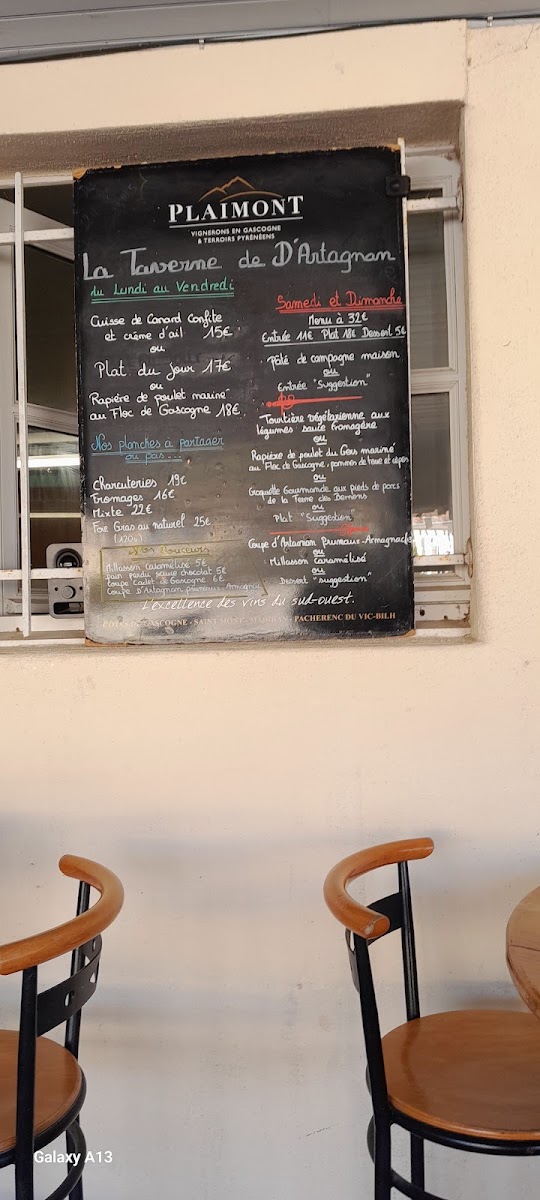 PLAIMONT
VIGNERONS EN GASCOGNE
& TERROIRS PYRÉNÉENS
La Taverne de D'Artagnan
du Lundi au Vendredi
Cuisse de Canard Confite
et crème d'ail 15€
ou
Plat du jour 17€
ou
Rapière de poulet mariné
au Floc de Gascogne 18€
Nos planches à partager
ou pas...
Charcuteries 19€
Fromages 16€
Mixte 22€
Foie Gras au naturel 25€
(120g)
Nos Douceurs
Millasson caramélisé 5€
pain perdu sauce chocolat 5€
Coupe de Gascogne 6€
Coupe D'Artagnan pruneaux-Armagnac
Samedi et Dimanche
Menu à 32€
Entrée 11€ Plat 18€ Dessert 5€
Pâté de campagne maison
ou
Entrée "Suggestion"
Tourtière végétarienne aux
légumes sauce fromagère
ou
Rapière de poulet du Gers mariné
au Floc de Gascogne, pommes de terre et cèpes
ou
Croquette Gourmande aux pieds de porcs
de la Ferme des
ou
Plat "Suggestion"
Coupe d'Artagnan Pruneaux-Armagnac
ou
Millasson Caramélisé
ou
Dessert "suggestion"
L'excellence des vins du sud-ouest.
CÔTES DE GASCOGNE - SAINT MONT - MADIRAN - PACHERENC DU VIC-BILH
Galaxy A13